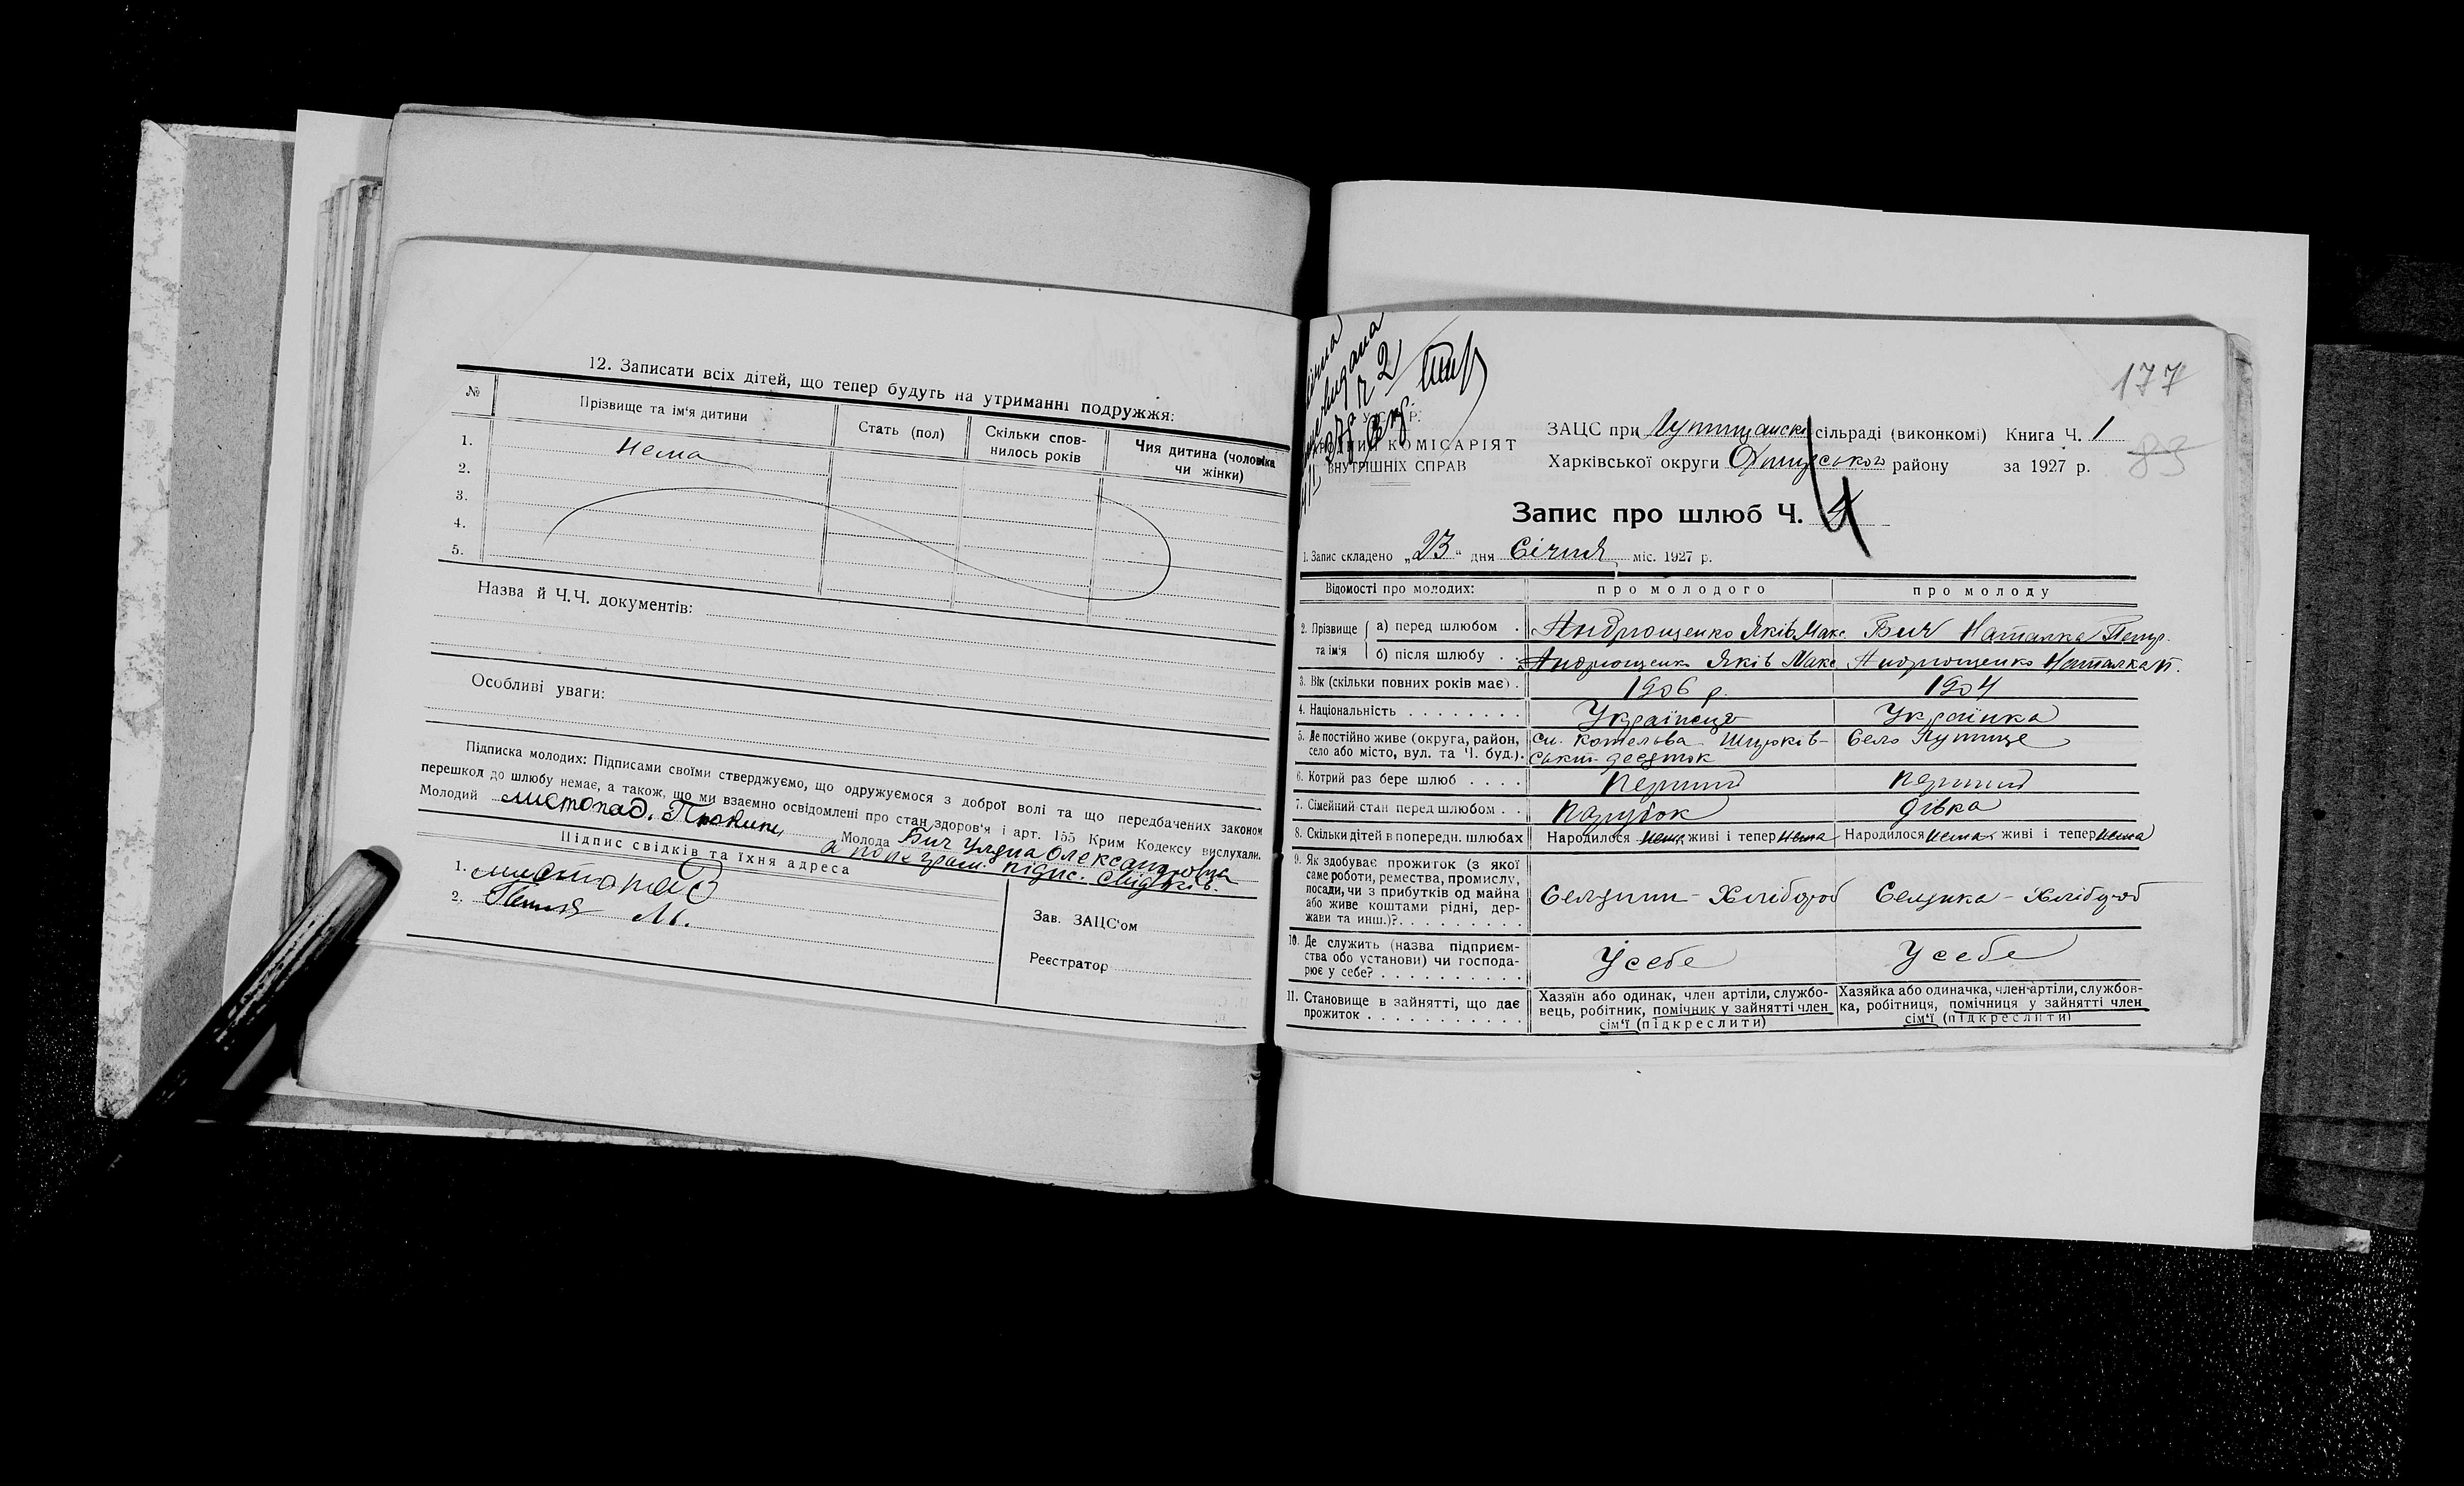 12. Записати всіх дітей, що тепер будуть на утриманні подружжя:
№ Прізвище та ім'я дитини Стать (пол) Скільки сповнилось років Чия дитина (чоловіка чи жінки)
1. Нема
2.
3.
4.
5.
Назва й Ч.Ч. документів:
Особливі уваги:
Підписка молодих: Підписами своїми стверджуємо, що одружуємося з доброї волі та що передбачених законом
перешкод до шлюбу немає, а також, що ми взаємно освідомлені про стан здоров'я і арт. 155 Крим Кодексу вислухали.
Молодий Листопад. Молода Бич Уляна Олександровна
Підпис свідків та їхня адреса
1. Листопад
2.
Зав. ЗАЦС'ом
Реєстратор
177
83
У С Р Р.
КОМІСАРІЯТ
ВНУТРІШНІХ СПРАВ
ЗАЦС при сільраді (виконкомі) Книга Ч. 1
Харківської округи району за 1927 р.
Запис про шлюб Ч. 4
1. Запис складено „23" дня Січня міс. 1927 р.
Відомості про молодих: про молодого про молоду
2. Прізвище та ім'я
а) перед шлюбом Андрющенко Яків Макс. Бич Наталка Петр.
б) після шлюбу Андрющенко Яків Макс Андрющенко Наталка П.
3. Вік (скільки повних років має) 1906 р. 1904
4. Національність Українець Українка
5. Де постійно живе (округа, район, сл. Котельва Село Лутище
село або місто, вул. та Ч. буд.) десяток
6. Котрий раз бере шлюб Перший Перший
7. Сімейний стан перед шлюбом Парубок Дівка
8. Скільки дітей в попередн. шлюбах Народилося нема живі і тепер нема Народилося нема живі і тепер нема
9. Як здобуває прожиток (з якої
саме роботи, ремества, промислу,
посади, чи з прибутків од майна
або живе коштами рідні, дер-
жави та инш.)? Селянин - Хлібороб Селянка - Хлібороб
10. Де служить (назва підприєм-
ства обо установи) чи господа-
рює у себе? У себе У себе
11. Становище в зайнятті, що дає
прожиток
Хазяїн або одинак, член артіли, службо-
вець, робітник, помічник у зайнятті член
сім'ї (підкреслити)
Хазяйка або одиначка, член артіли, службов-
ка, робітниця, помічниця у зайнятті член
сім'ї (підкреслити)